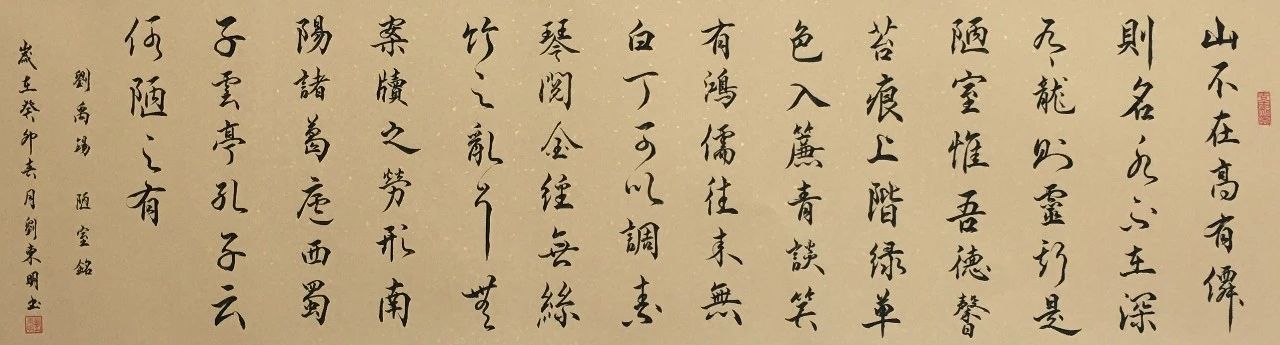 山不在高有僊
則名水不在深
有龍則靈斯是
陋室惟吾德馨
苔痕上階緑草
色入簾青談笑
有鴻儒往来無
白丁可以調素
琴閲金經無絲
竹之亂耳無
案牘之勞形南
陽諸葛廬西蜀
子雲亭孔子云
何陋之有
劉禹錫 陋室銘
歲在癸卯春月劉東明書